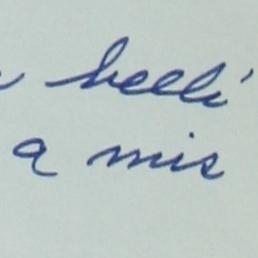 kelli
a mis